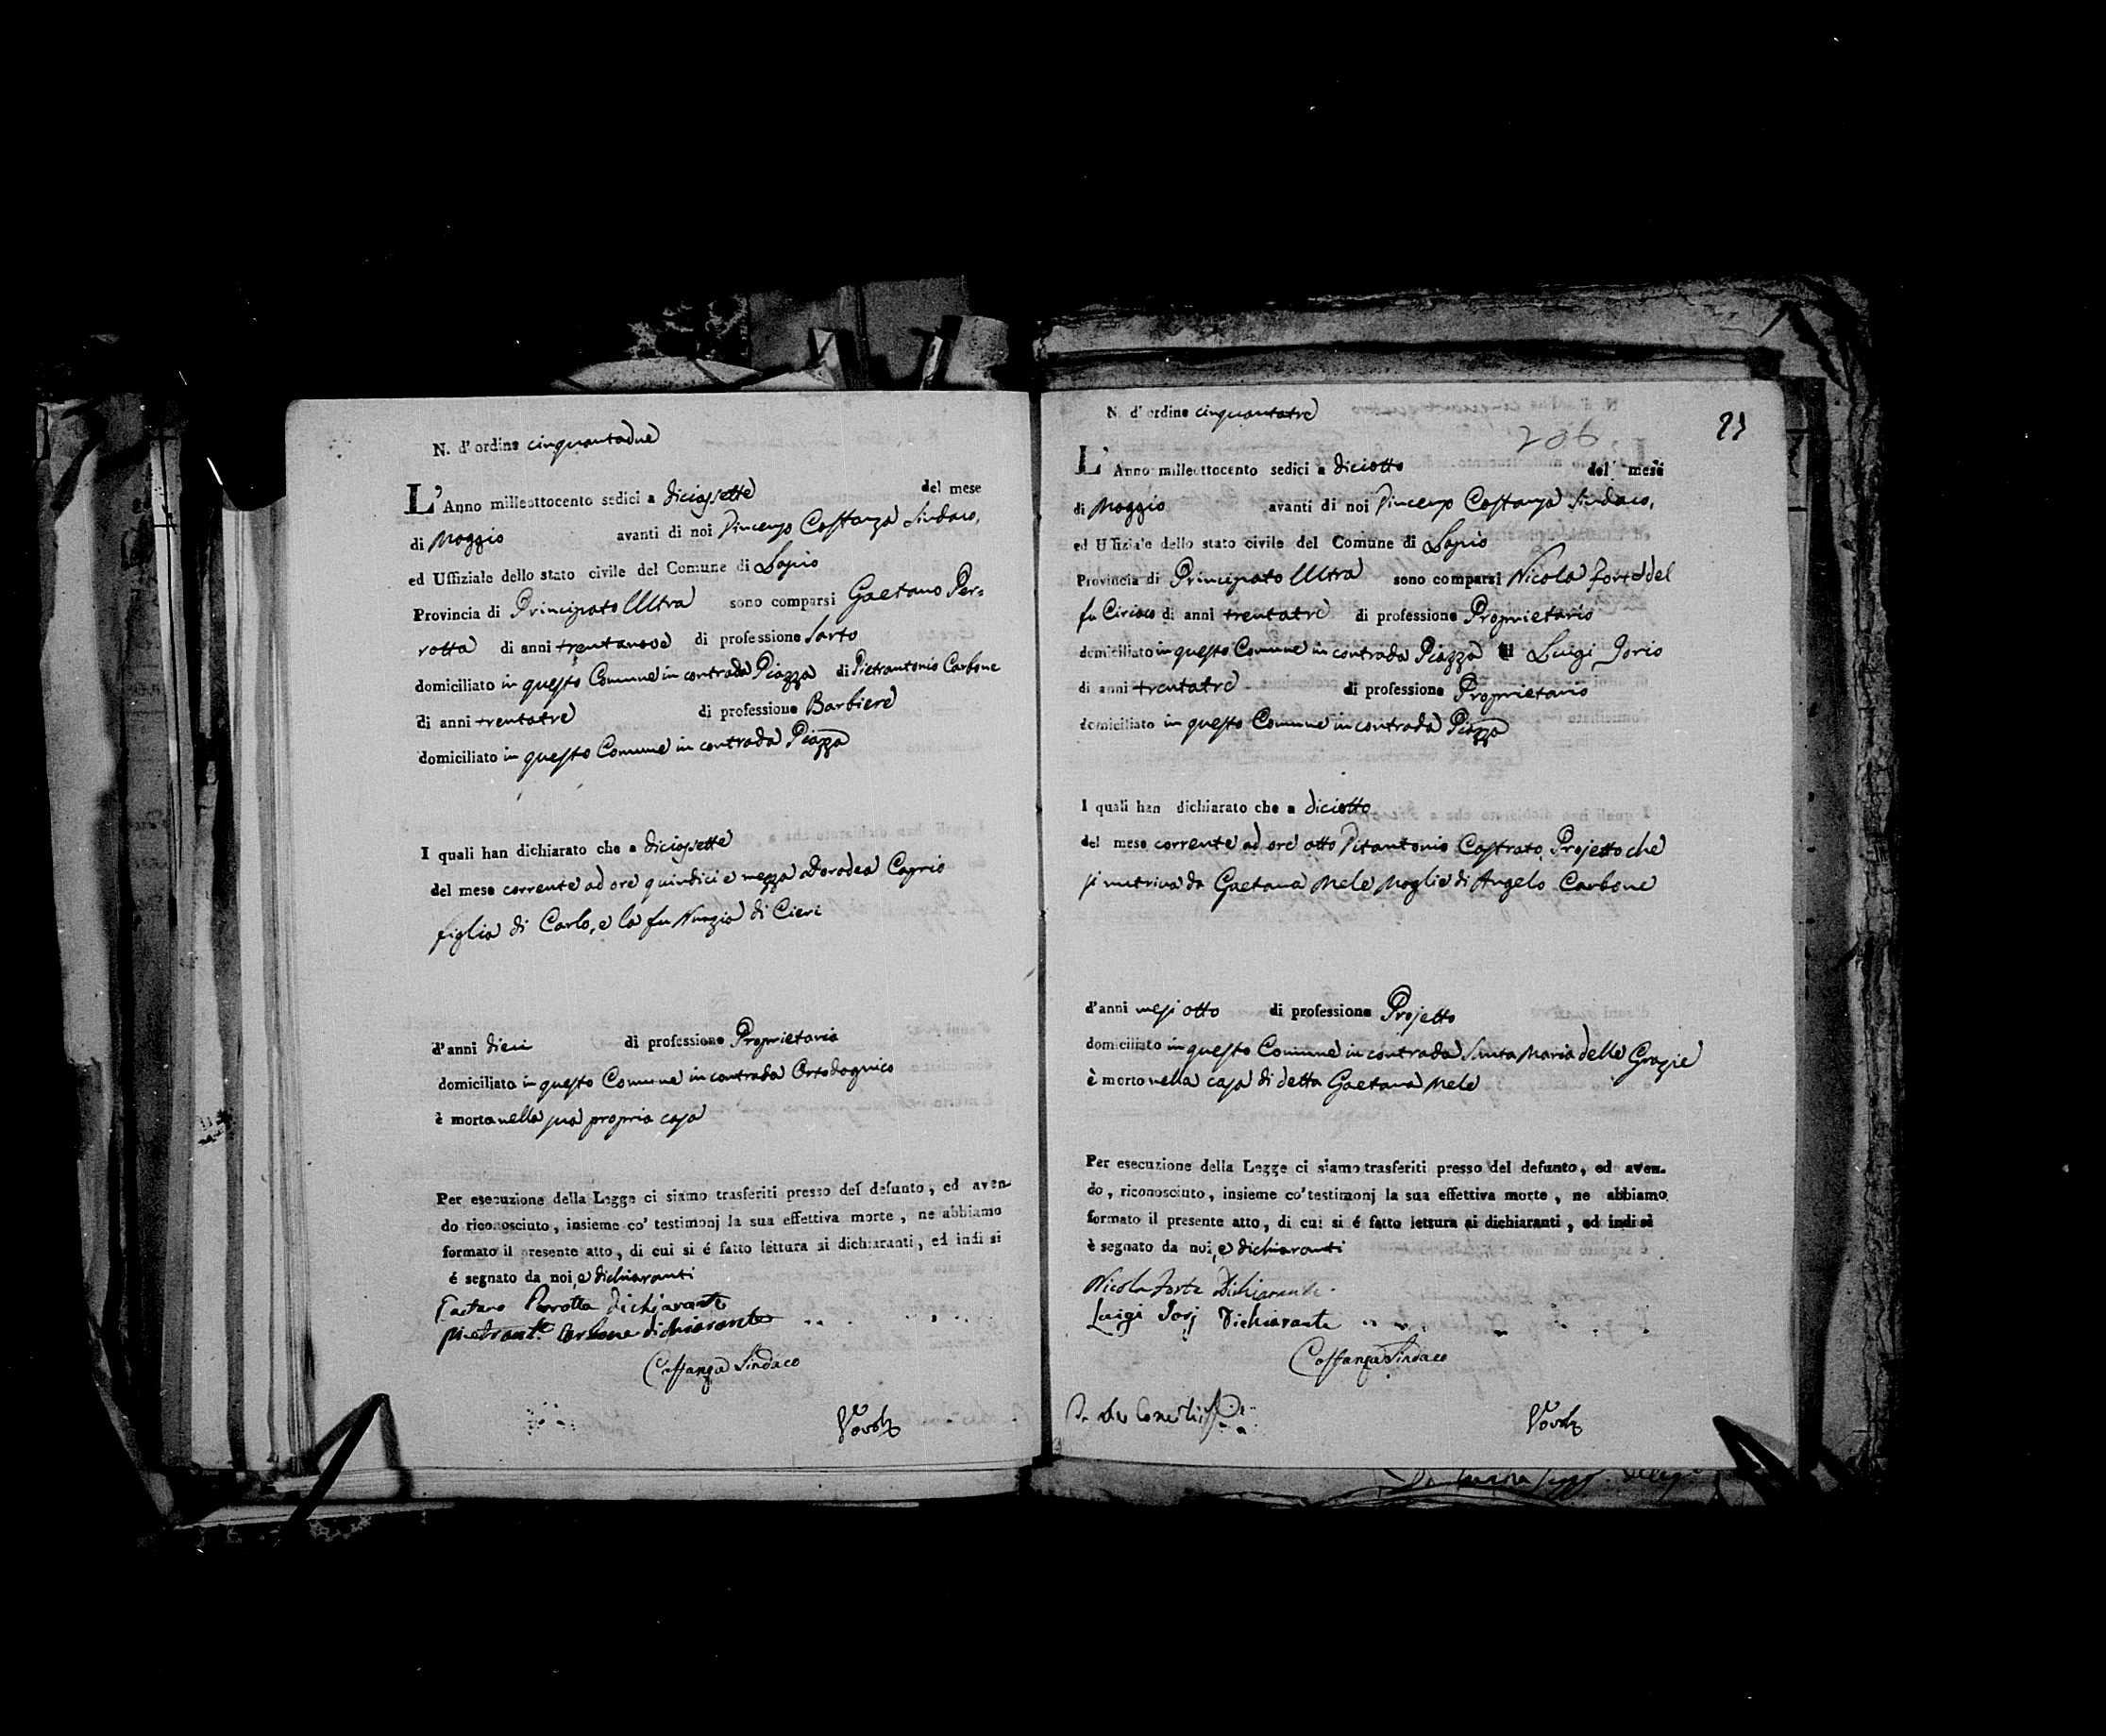 N. d'ordine cinquantadue
L'Anno milleottocento sedici a diciassette del mese
di Maggio avanti di noi Vincenzo Costanza Sindaco,
ed Uffiziale dello stato civile del Comune di Lapio
Provincia di Principato Ultra sono comparsi Gaetano Per-
rotta di anni trentanove di professione Sarto
domiciliato in questo Comune in contrada Piazza di Pietrantonio Carbone
di anni trentatre di professione Barbiere
domiciliato in questo Comune in contrada Piazza
I quali han dichiarato che a diciassette
del mese corrente ad ore quindici e mezza Dorodea Caprio
figlia di Carlo, e la fu Nunzia di Cieri
d'anni dieci di professione Proprietaria
domiciliata in questo Comune in contrada Ortodognico
è morta nella sua propria casa
Per esecuzione della Legge ci siamo trasferiti presso del defunto, ed aven-
do riconosciuto, insieme co' testimonj la sua effettiva morte, ne abbiamo
formato il presente atto, di cui si é fatto lettura ai dichiaranti, ed indi si
é segnato da noi, e dichiaranti
Gaetano Perrotta dichiarante
Pietrant.o Carbone dichiarante
Costanza Sindaco
N. d'ordine cinquantatre
23
206
L'Anno milleottocento sedici a diciotto del mese
di Maggio avanti di noi Vincenzo Costanza Sindaco,
ed Uffiziale dello stato civile del Comune di Lapio
Provincia di Principato Ultra sono comparsi Nicola Forte del
fu Ciriaco di anni trentatre di professione Proprietario
domiciliato in questo Comune in contrada Piazza Luigi Jorio
di anni trentatre di professione Proprietario
domiciliato in questo Comune in contrada Piazza
I quali han dichiarato che a diciotto
del mese corrente ad ore otto Vitantonio Castrato Projetto che
si nutriva da Gaetana Mele Moglie di Angelo Carbone
d'anni mesi otto di professione Projetto
domiciliato in questo Comune in contrada Santa Maria delle Grazie
è morto nella casa di detta Gaetana Mele
Per esecuzione della Legge ci siamo trasferiti presso del defunto, ed aven-
do, riconosciuto, insieme co' testimonj la sua effettiva morte, ne abbiamo
formato il presente atto, di cui si é fatto lettura ai dichiaranti, ed indi si
è segnato da noi, e dichiaranti
Nicola Forte Dichiarante
Luigi Jorj Dichiarante
Costanza Sindaco